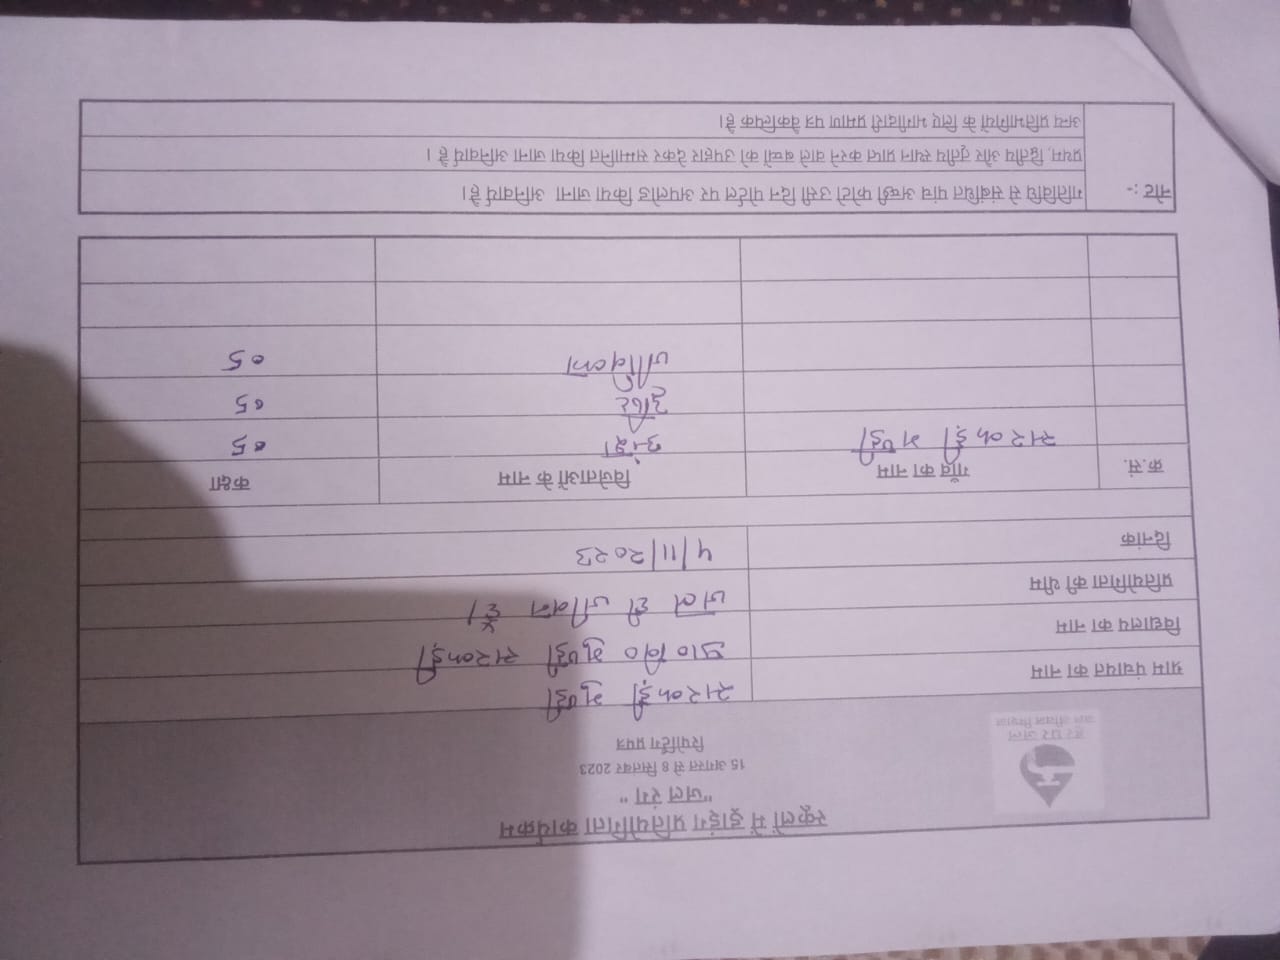 स्कूलों में ड्राइंग प्रतियोगिता कार्यक्रम
"जल रंग"
15 अगस्त से 8 सितंबर 2023
रिपोर्टिंग प्रपत्र
हर घर जल
जल जीवन मिशन
ग्राम पंचायत का नाम सरकड़ी मुण्डी
विद्यालय का नाम प्रा० वि० मुण्डी सरकड़ी
प्रतियोगिता की थीम जल ही जीवन है।
दिनांक 4/11/2023
क्र.सं. गाँव का नाम विजेताओं के नाम कक्षा
सरकड़ी मुण्डी अंश 05
05
जीविका 05
नोट :- गतिविधि से संबंधित पांच अच्छी फोटो उसी दिन पोर्टल पर अपलोड किया जाना अनिवार्य है।
प्रथम, द्वितीय और तृतीय स्थान प्राप्त करने वाले बच्चों को उपहार देकर सम्मानित किया जाना अनिवार्य है ।
अन्य प्रतिभागियों के लिए भागीदारी प्रमाण पत्र वैकल्पिक है।